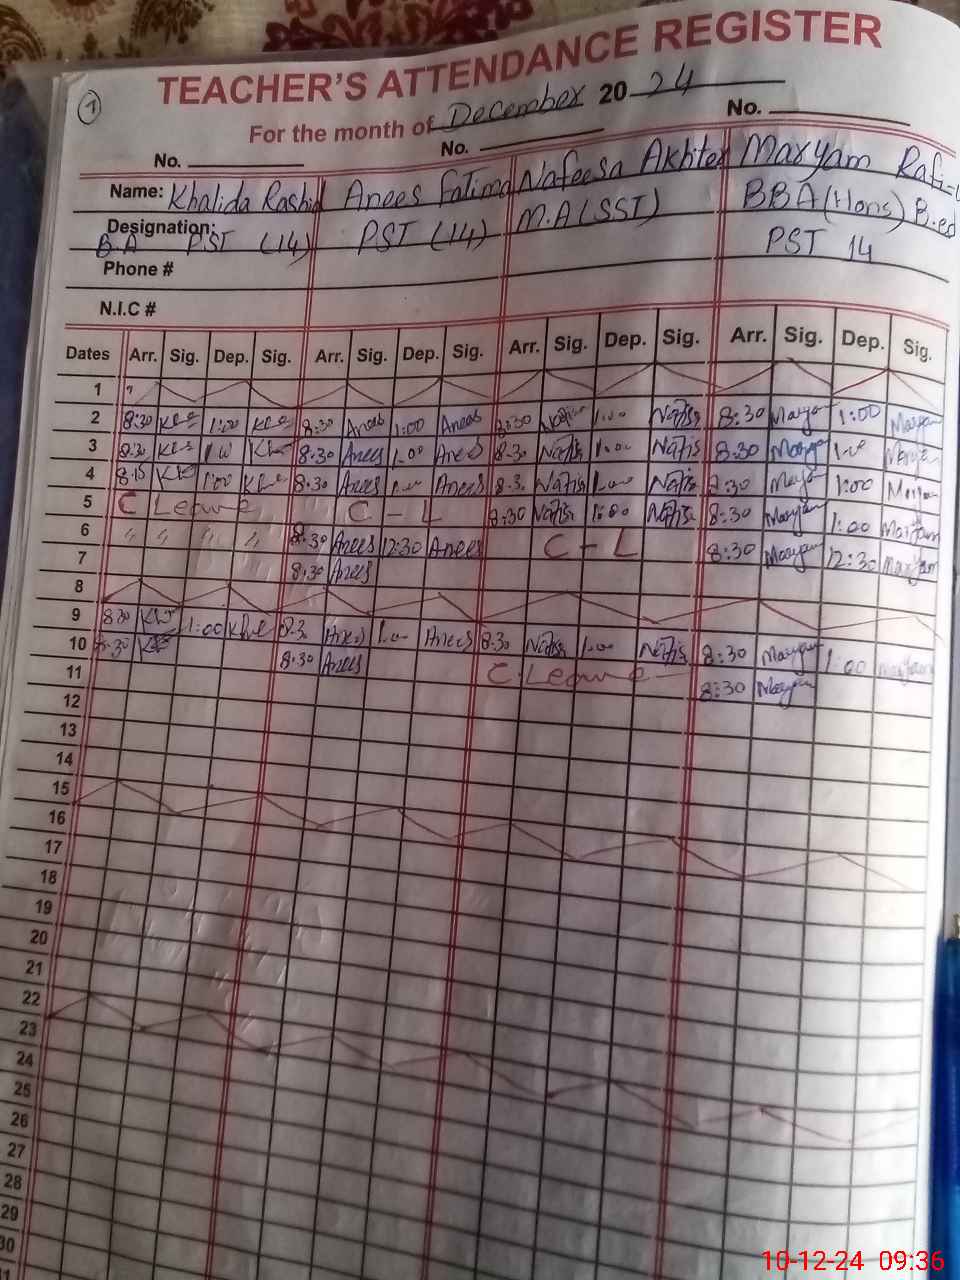 1
TEACHER'S ATTENDANCE REGISTER
For the month of December 2024
No. No. No.
Name: Khalida Rashid Anees Fatima Nafeesa Akhter Maryam Rafi
Designation: B.A PST (14) PST (14) M.A (SST) BBA (Hons) B.ed PST 14
Phone #
N.I.C #
Dates Arr. Sig. Dep. Sig. Arr. Sig. Dep. Sig. Arr. Sig. Dep. Sig. Arr. Sig. Dep. Sig.
1
2 8:30 1:00 8:30 Anees 1:00 Anees 8:30 Nafis 1:00 Nafis 8:30 Maryam 1:00 Maryam
3 8:30 1:00 8:30 Anees 1:00 Anees 8:30 Nafis 1:00 Nafis 8:30 Maryam 1:00 Maryam
4 8:15 1:00 8:30 Anees 1:00 Anees 8:30 Nafis 1:00 Nafis 8:30 Maryam 1:00 Maryam
5 C Leave C-L 8:30 Nafis 1:00 Nafis 8:30 Maryam 1:00 Maryam
6 " " " " 8:30 Anees 12:30 Anees C-L 8:30 Maryam 12:30 Maryam
7 8:30 Anees
8
9 8:30 1:00 8:30 Anees 1:00 Anees 8:30 Nafis 1:00 Nafis 8:30 Maryam 1:00 Maryam
10 8:30 8:30 Anees C.Leave 8:30 Maryam
11
12
13
14
15
16
17
18
19
20
21
22
23
24
25
26
27
28
29
30
10-12-24 09:36